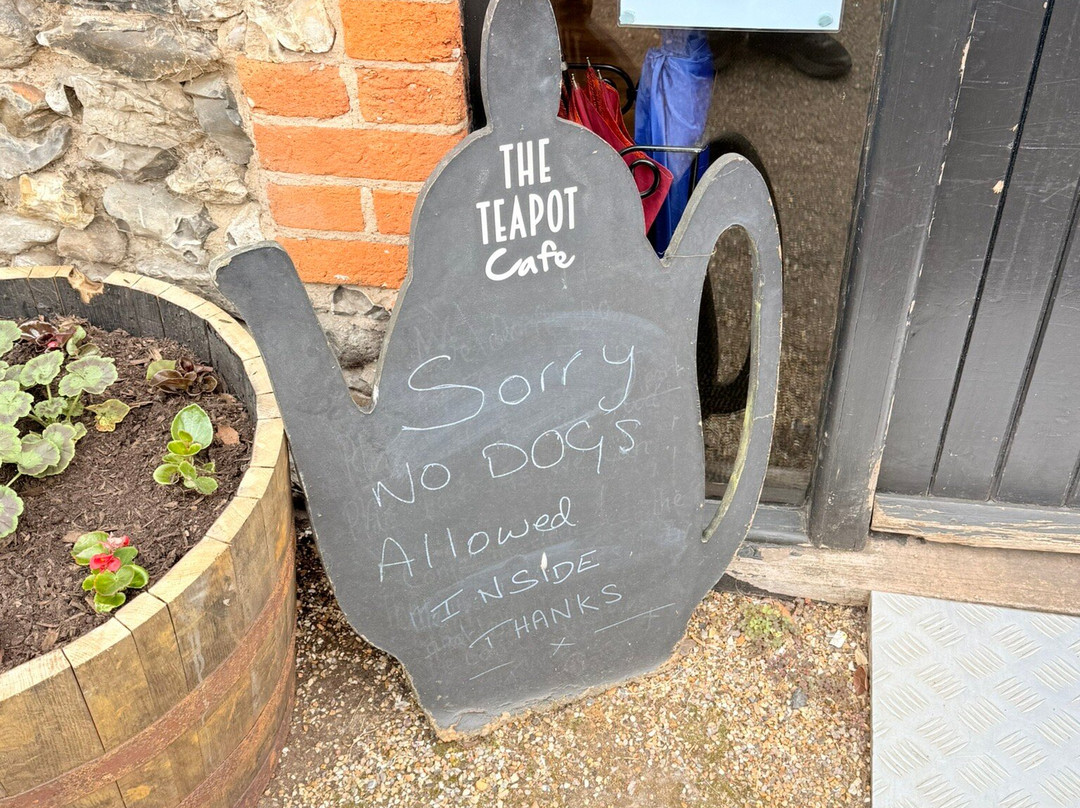 THE
TEAPOT
Cafe
Sorry
NO DOGS
Allowed
INSIDE
THANKS
x